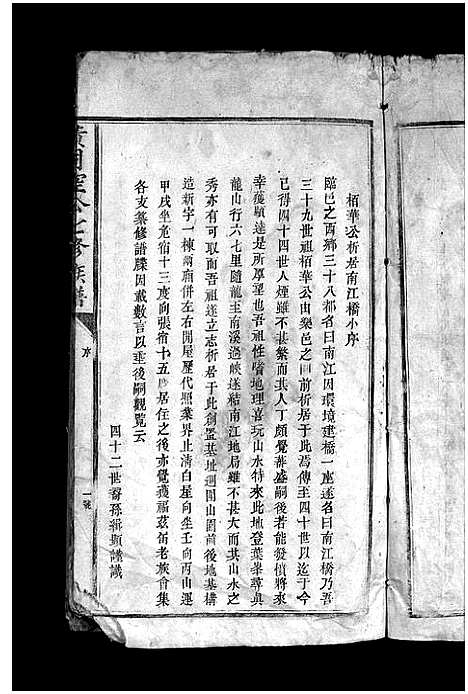 栢華公析居南江橋小序
臨邑之西鄉三十八都名曰南江因環境建橋一座遂名曰南江橋乃吾
三十九世祖栢華公由樂邑之田前析居于此焉傳至四十世以迄于今
已得四十四世人煙雖不甚繁而其人丁頗覺蕃盛嗣後若能發價將來
幸獲顯達是所厚望也吾祖性嗜地理喜玩山水特來此地登葉峯尋眞
龍山行六七里隨龍至南溪過峽遂結南江地局雖不甚大而其山水之
秀亦有可取而吾祖遂立志析居于此創置基址迴圍山園前後地基構
造新宇一椽兩廟併左右閒屋歷代照業界止清白呈向坐壬向丙山運
甲戌坐危宿十三度向張宿十五度居住之後亦覺獲福茲領老族會集
各支纂修譜牒因載數言以垂後嗣觀覽云
四十二世裔孫緝顯謹識
公七修族譜
序
一號